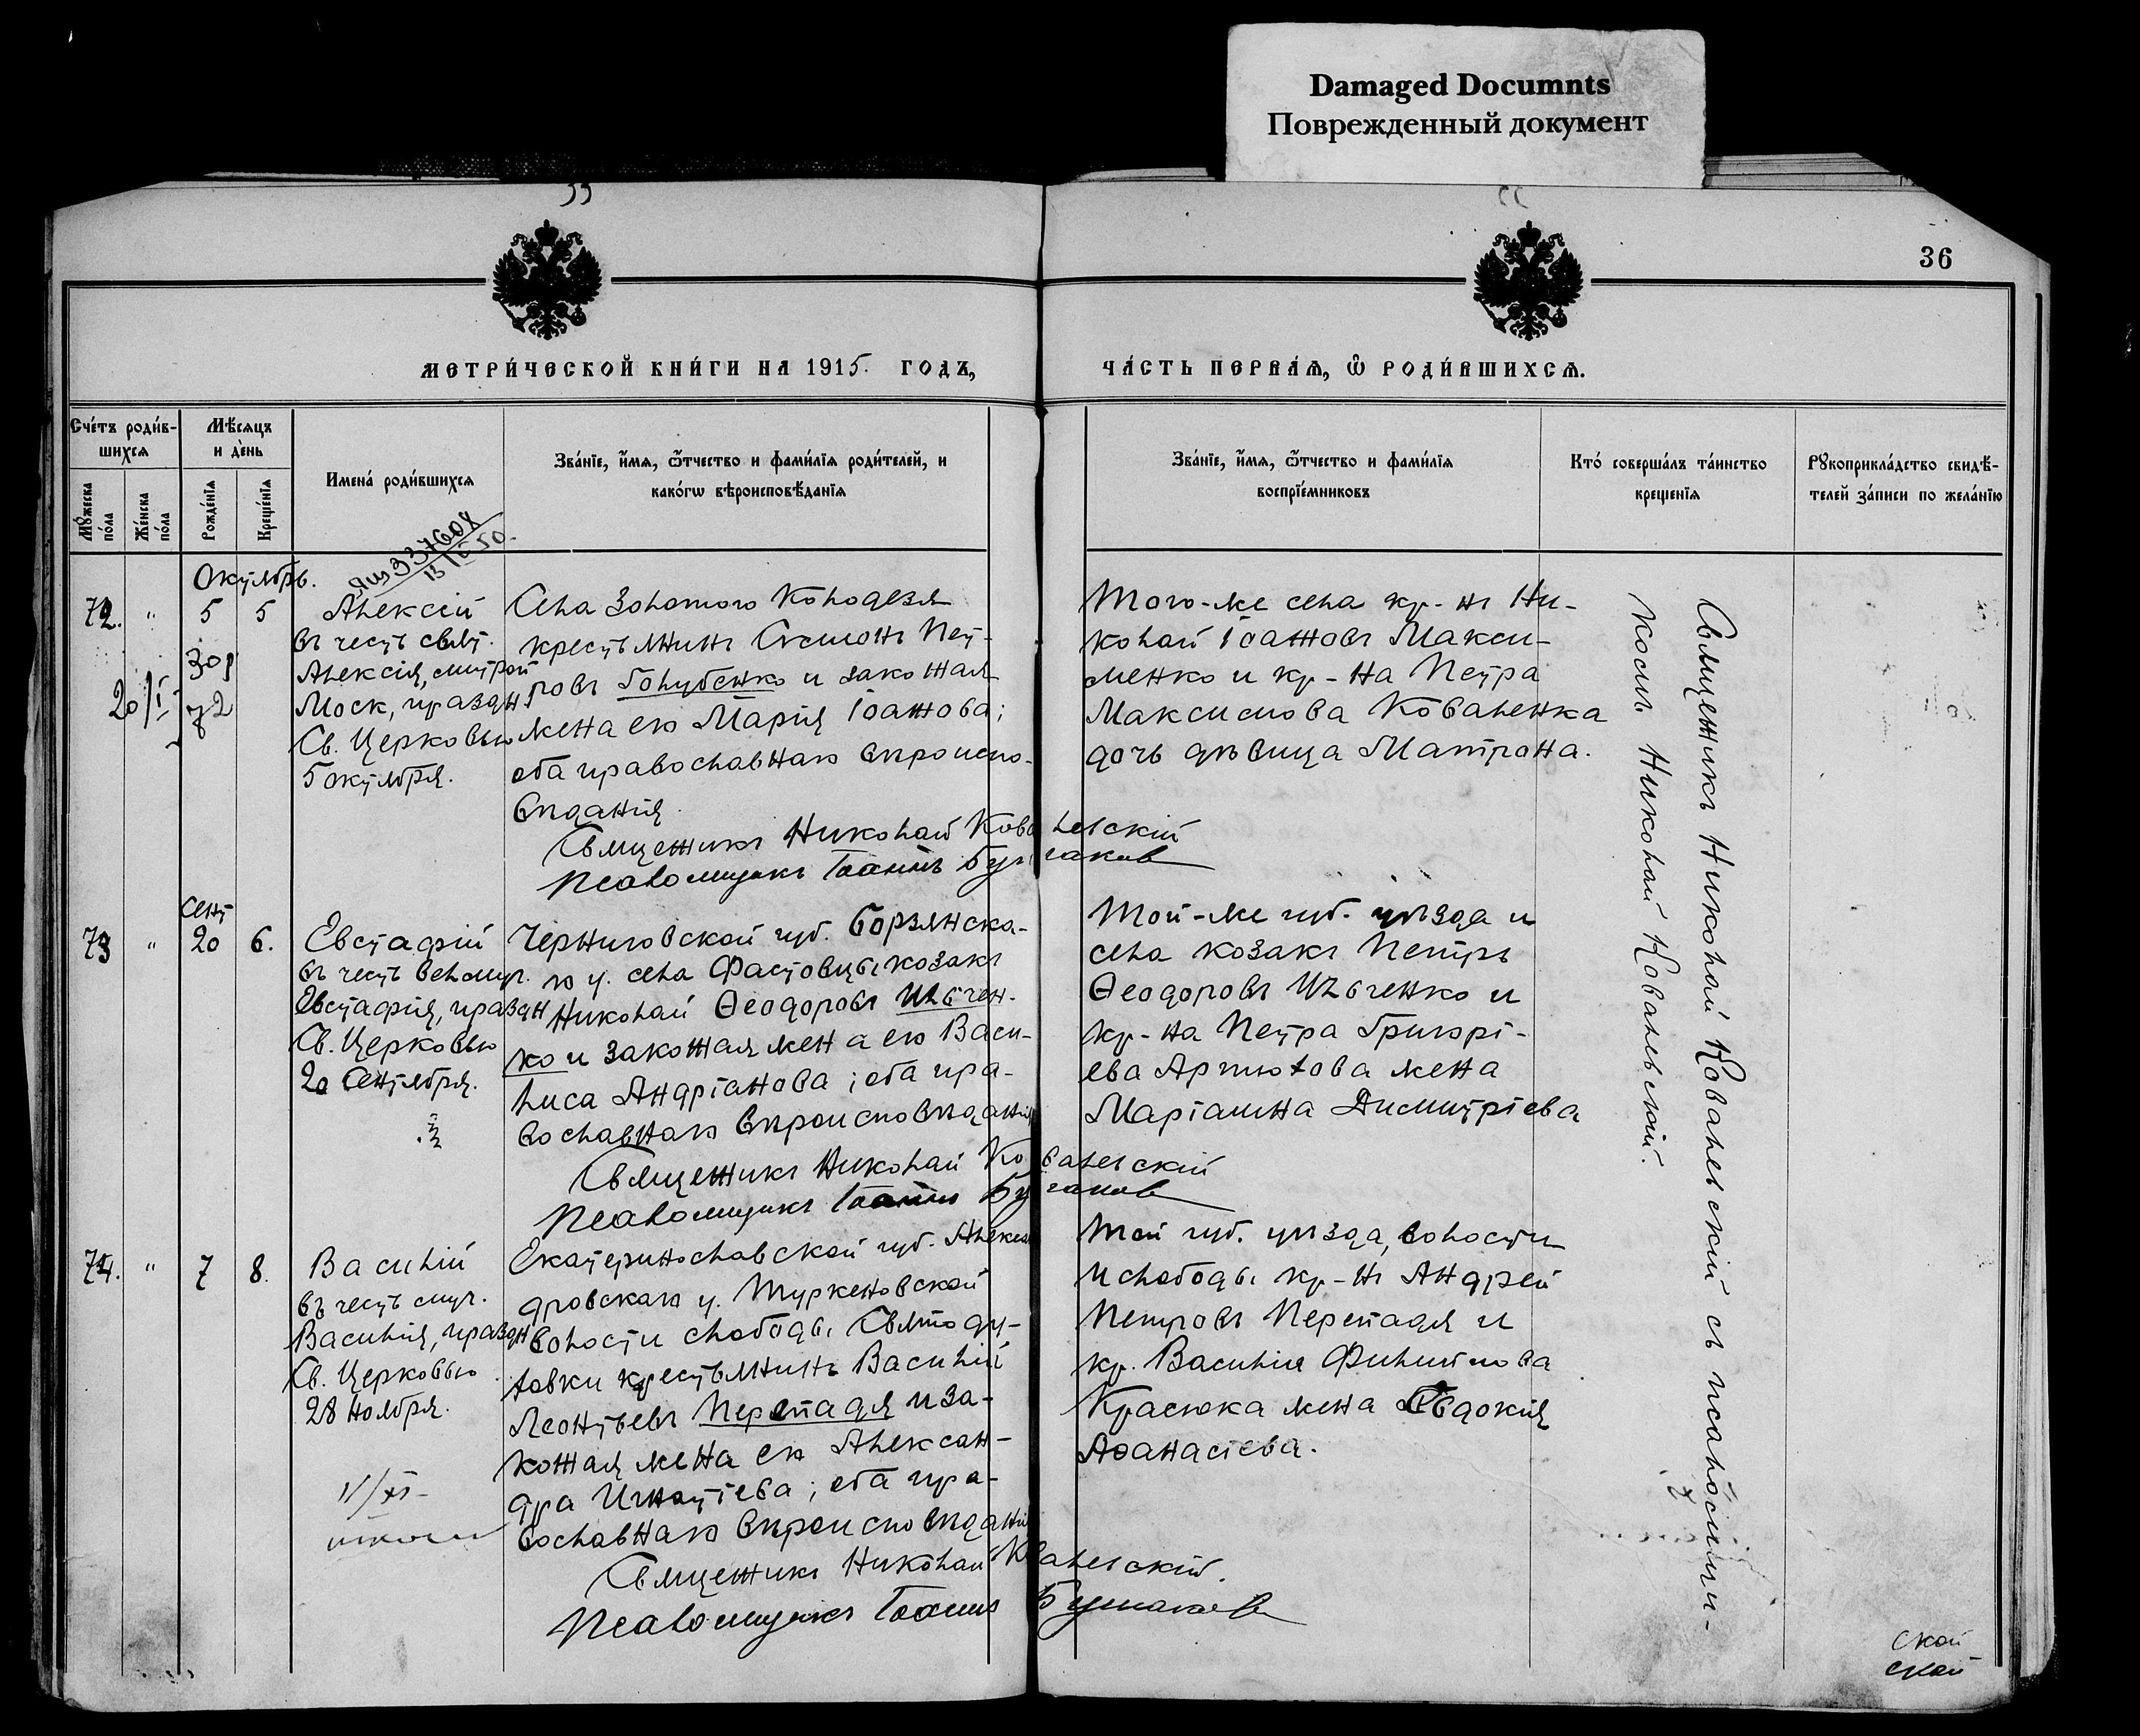 Damaged Documnts
Поврежденный документ
36
МЕТРИ́ЧЕСКОЙ КНИ́ГИ НА 1915. ГОДЪ,
ЧА́СТЬ ПЕРВАЯ, Ѽ РОДИ́ВШИХСѦ.
Сче́тъ роди́в-
шихсѧ
Мѣ́сѧцъ
и де́нь
Мꙋ́жеска по́ла
Же́нска по́ла
Рожде́нїѧ
Креще́нїѧ
Имена́ роди́вшихсѧ
Зва́нїе, и́мѧ, ѻ҆́тчество и фами́лїѧ роди́телей, и
како́гѡ вѣроисповѣ́данїѧ
Зва́нїе, и́мѧ, ѻ҆́тчество и фами́лїѧ
воспрїе́мниковъ
Кто́ соверша́лъ та́инство
креще́нїѧ
Рꙋкоприкла́дство свидѣ́-
телей за́писи по жела́нїю
Октябрь.
72. " 5 5
Алексій
въ честь свят.
Алексія, митроп
Моск, праздн
Св. Церковью
5 октября.
Села Золотого Колодезя
крестьянинъ Симонъ Пет-
ровъ Голубенко и законная
жена его Марія Іоаннова;
оба православнаго вѣроиспо-
вѣданія.
Священникъ Николай Ковалевскій
Псаломщикъ Іоаннъ Булгаковъ
Того-же села кр-нъ Ни-
колай Іоанновъ Макси-
менко и кр-на Петра
Максимова Коваленка
дочь дѣвица Матрона.
Священникъ Николай Ковалевскій съ псаломщи-
комъ Николай Ковалевскій.
Сент
73 " 20 6.
Евстафій
въ честь велмуч.
Евстафія, праздн
Св. Церковью
20 Сентября.
Черниговской губ. Борзянска-
го у. села Фастовцы козакъ
Николай Ѳеодоровъ Ильчен-
ко и законная жена его Васи-
лиса Андріанова; оба пра-
вославнаго вѣроисповѣданія
Священникъ Николай Ковалевскій
Псаломщикъ Іоаннъ Булгаковъ
Той-же губ. уѣзда и
села козакъ Петръ
Ѳеодоровъ Ильченко и
кр-на Петра Григорі-
ева Артюхова жена
Маріамна Димитріева
74. " 7 8.
Василій
въ честь муч.
Василія, праздн
Св. Церковью
28 Ноября.
Екатеринославской губ. Алексан
дровскаго у. Туркеновской
волости слободы Святоду-
ховки крестьянинъ Василій
Леонтьевъ Перепадя и за-
конная жена его Алексан-
дра Игнатіева; оба пра-
вославнаго вѣроисповѣданія
Священникъ Николай Ковалевскій.
Псаломщикъ Іоаннъ Булгаковъ
Той губ. уѣзда, волости
и слободы кр-нъ Андрей
Петровъ Перепадя и
кр. Василія Филиппова
Красюка жена Евдокія
Аѳанасіева.
ской
ской